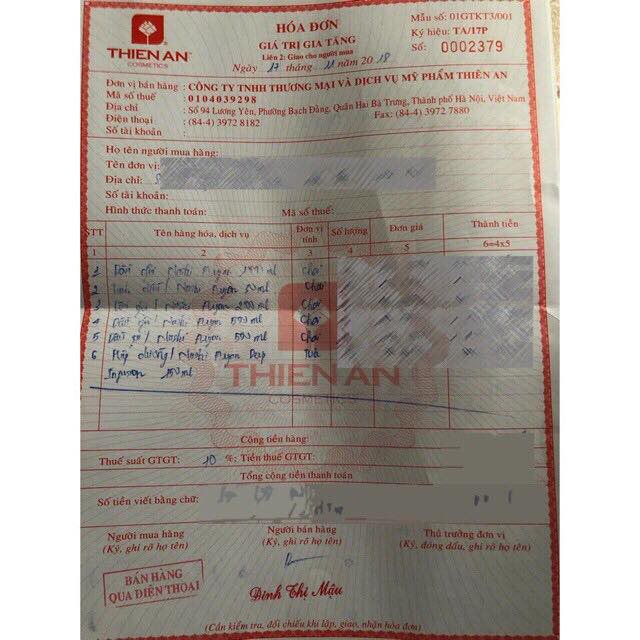 THIEN AN
COSMETICS
HÓA ĐƠN
GIÁ TRỊ GIA TĂNG
Liên 2: Giao cho người mua
Ngày 17 tháng 11 năm 2018
Mẫu số: 01GTKT3/001
Ký hiệu: TA/17P
Số: 0002379
Đơn vị bán hàng : CÔNG TY TNHH THƯƠNG MẠI VÀ DỊCH VỤ MỸ PHẨM THIÊN AN
Mã số thuế : 0104039298
Địa chỉ : Số 94 Lương Yên, Phường Bạch Đằng, Quận Hai Bà Trưng, Thành phố Hà Nội, Việt Nam
Điện thoại : (84-4) 3972 8182 Fax: (84-4) 3972 7880
Số tài khoản :
Họ tên người mua hàng:
Tên đơn vị:
Địa chỉ:
Số tài khoản:
Hình thức thanh toán: Mã số thuế:
STT Tên hàng hóa, dịch vụ Đơn vị tính Số lượng Đơn giá Thành tiền
1 2 3 4 5 6=4x5
1 Nashi Argan ml Chai
2 Nashi Argan ml Chai
3 Nashi Argan ml Chai
4 Dầu gội Nashi Argan 500 ml Chai
5 Dầu Nashi Argan 500 ml Chai
6 Nashi Argan Deep
Infusion 150 ml
THIEN AN
COSMETICS
Cộng tiền hàng:
Thuế suất GTGT: 10 %; Tiền thuế GTGT:
Tổng cộng tiền thanh toán
Số tiền viết bằng chữ:
Người mua hàng
(Ký, ghi rõ họ tên)
Người bán hàng
(Ký, ghi rõ họ tên)
Thủ trưởng đơn vị
(Ký, đóng dấu, ghi rõ họ tên)
BÁN HÀNG
QUA ĐIỆN THOẠI
Đinh Thị Mậu
(Cần kiểm tra, đối chiếu khi lập, giao, nhận hóa đơn)